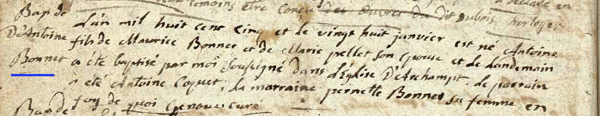 témoins être
Bap de L'an mil huit cent cinq et le vingt huit janvier est né Antoine
D'Antoine fils de Maurice Bonnet et de Marie pellet son Epouse et de Landemain
Bonnet a été baptisé par moi Soussigné dans L'Eglise D'Archampt. le parrain
a été Antoine Coquet, la marraine pernette Bonnet sa femme en
foy de quoi Genoux curé
Bap de